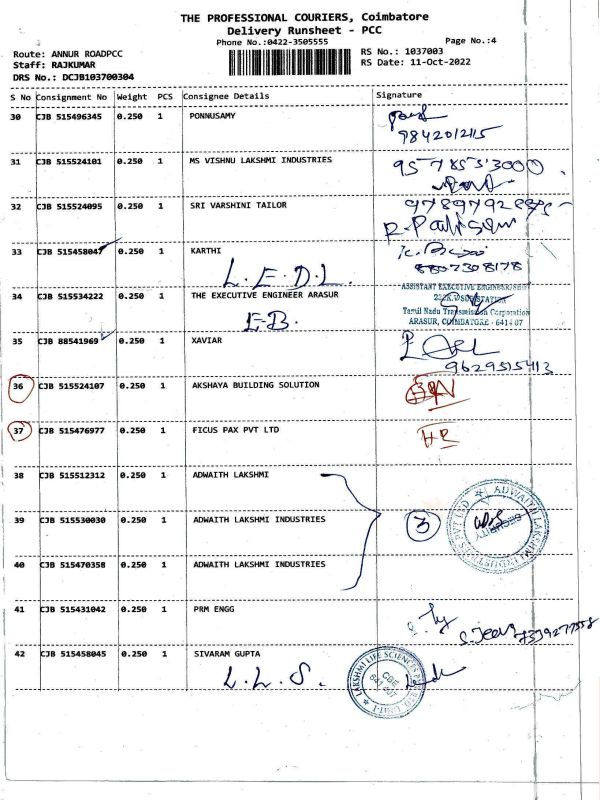 THE PROFESSIONAL COURIERS, Coimbatore
Delivery Runsheet - PCC
Phone No.:0422-3505555
Page No.:4
Route: ANNUR ROADPCC
RS No.: 1037003
Staff: RAJKUMAR
RS Date: 11-Oct-2022
DRS No.: DCJB103700304
S No Consignment No Weight PCS Consignee Details Signature
30 CJB 515496345 0.250 1 PONNUSAMY
9842012115
31 CJB 515524101 0.250 1 MS VISHNU LAKSHMI INDUSTRIES
32 CJB 515524095 0.250 1 SRI VARSHINI TAILOR
33 CJB 515458047 0.250 1 KARTHI
8807308178
L.E.D.L.
34 CJB 515534222 0.250 1 THE EXECUTIVE ENGINEER ARASUR
E-B.
ASSISTANT EXECUTIVE ENGINEER
Tamil Nadu Transmission Corporation
ARASUR, COIMBATORE - 641407
35 CJB 88541969 0.250 1 XAVIAR
9629515413
36 CJB 515524107 0.250 1 AKSHAYA BUILDING SOLUTION
37 CJB 515476977 0.250 1 FICUS PAX PVT LTD
38 CJB 515512312 0.250 1 ADWAITH LAKSHMI
39 CJB 515530030 0.250 1 ADWAITH LAKSHMI INDUSTRIES
3
ADWAITH LAKSHMI INDUSTRIES PVT LTD
SECURITY
40 CJB 515470358 0.250 1 ADWAITH LAKSHMI INDUSTRIES
41 CJB 515431042 0.250 1 PRM ENGG
42 CJB 515458045 0.250 1 SIVARAM GUPTA
L.L.S.
LAKSHMI LIFE SCIENCES
CBE
641 407